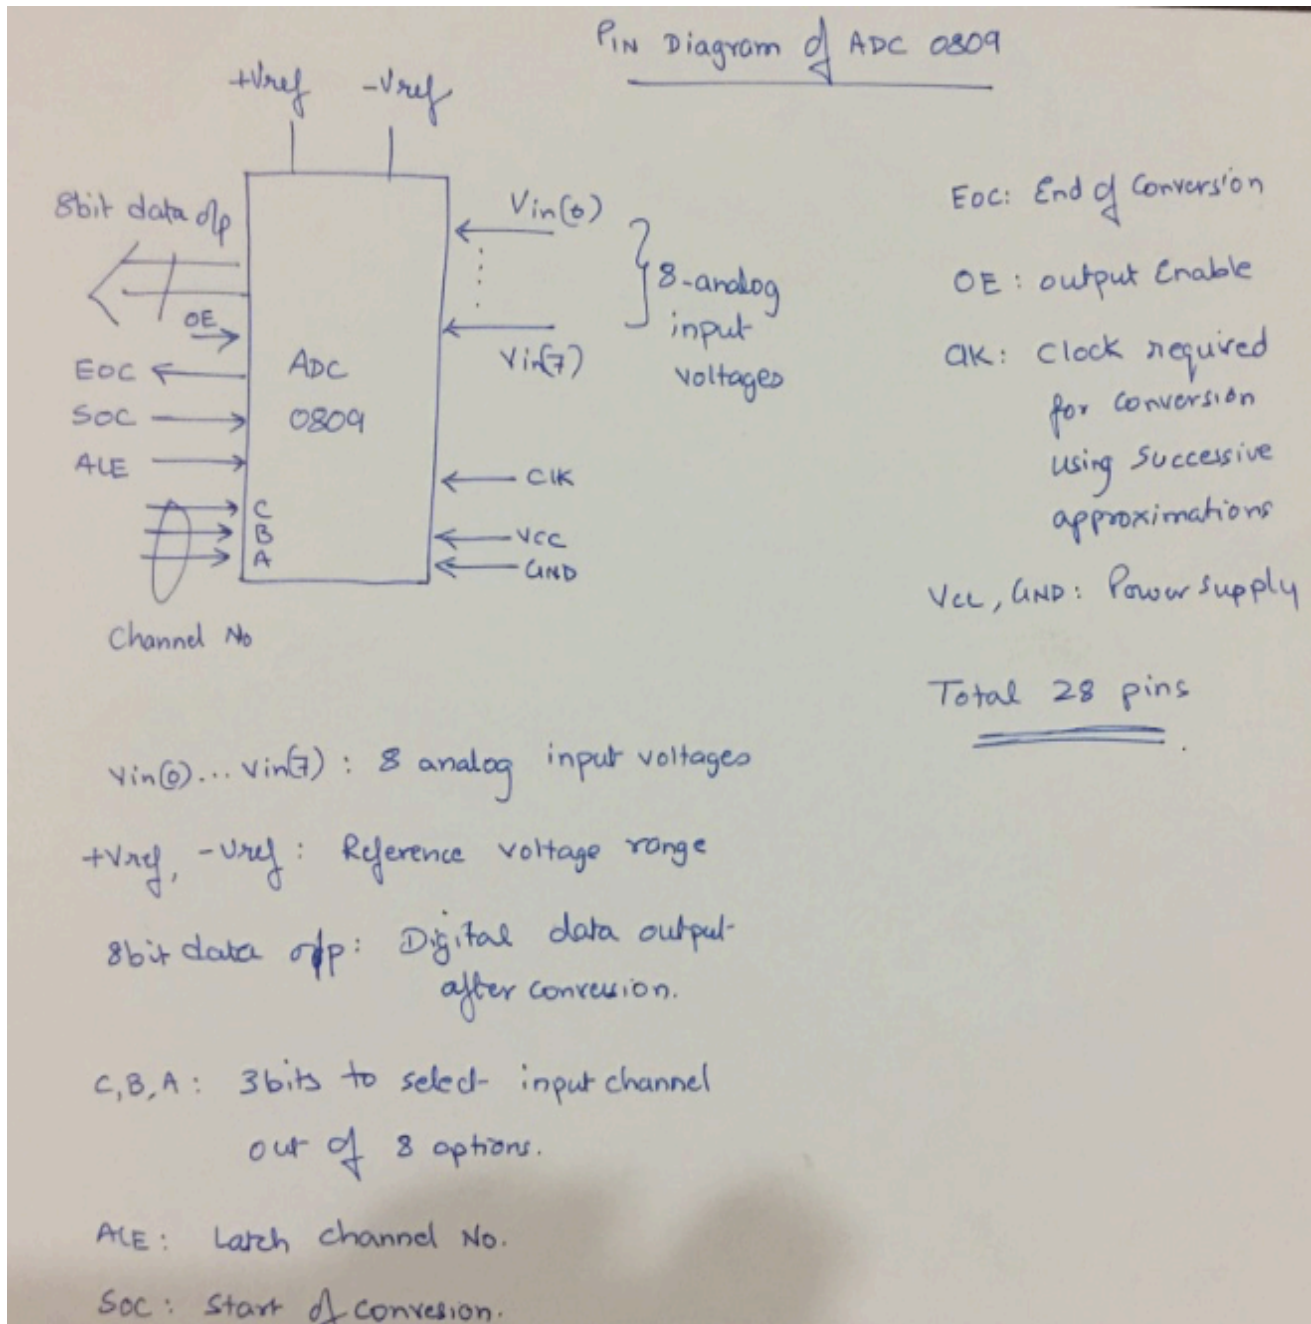 PIN Diagram of ADC 0809
+Vref -Vref
8bit data o/p
OE
EOC
SOC
ALE
C
B
A
Channel No
ADC
0809
Vin(0)
Vin(7)
8-analog
input
voltages
CLK
VCC
GND
EOC: End of Conversion
OE: output Enable
CLK: Clock required
for conversion
using Successive
approximations
VCC, GND: Power Supply
Total 28 pins
Vin(0)... Vin(7): 8 analog input voltages
+Vref, -Vref: Reference voltage range
8bit data o/p: Digital data output
after conversion.
C,B,A: 3bits to select input channel
out of 8 options.
ALE: Latch channel No.
SOC: Start of convesion.